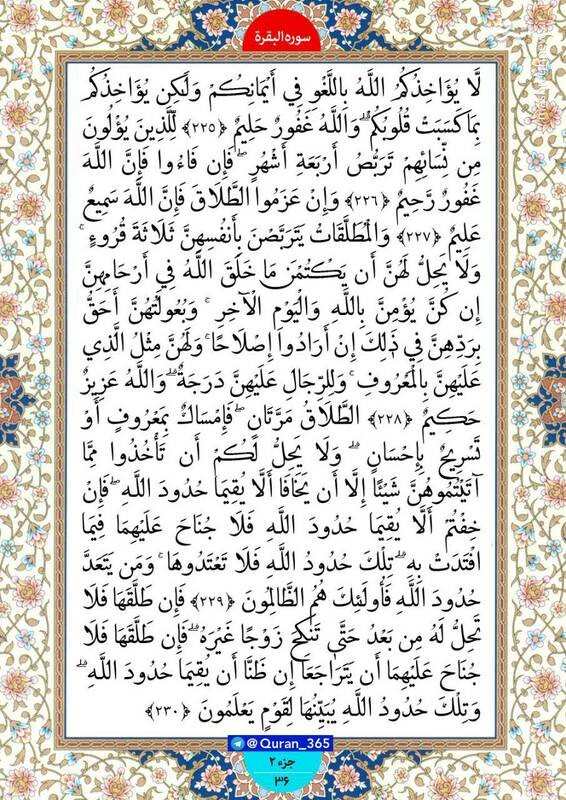 سوره البقرة
لَّا يُؤَاخِذُكُمُ اللَّهُ بِاللَّغْوِ فِي أَيْمَانِكُمْ وَلَٰكِن يُؤَاخِذُكُم
بِمَا كَسَبَتْ قُلُوبُكُمْ ۗ وَاللَّهُ غَفُورٌ حَلِيمٌ ﴿٢٢٥﴾ لِّلَّذِينَ يُؤْلُونَ
مِن نِّسَائِهِمْ تَرَبُّصُ أَرْبَعَةِ أَشْهُرٍ ۖ فَإِن فَاءُوا فَإِنَّ اللَّهَ
غَفُورٌ رَّحِيمٌ ﴿٢٢٦﴾ وَإِنْ عَزَمُوا الطَّلَاقَ فَإِنَّ اللَّهَ سَمِيعٌ
عَلِيمٌ ﴿٢٢٧﴾ وَالْمُطَلَّقَاتُ يَتَرَبَّصْنَ بِأَنفُسِهِنَّ ثَلَاثَةَ قُرُوءٍ ۚ
وَلَا يَحِلُّ لَهُنَّ أَن يَكْتُمْنَ مَا خَلَقَ اللَّهُ فِي أَرْحَامِهِنَّ
إِن كُنَّ يُؤْمِنَّ بِاللَّهِ وَالْيَوْمِ الْآخِرِ ۚ وَبُعُولَتُهُنَّ أَحَقُّ
بِرَدِّهِنَّ فِي ذَٰلِكَ إِنْ أَرَادُوا إِصْلَاحًا ۚ وَلَهُنَّ مِثْلُ الَّذِي
عَلَيْهِنَّ بِالْمَعْرُوفِ ۚ وَلِلرِّجَالِ عَلَيْهِنَّ دَرَجَةٌ ۗ وَاللَّهُ عَزِيزٌ
حَكِيمٌ ﴿٢٢٨﴾ الطَّلَاقُ مَرَّتَانِ ۖ فَإِمْسَاكٌ بِمَعْرُوفٍ أَوْ
تَسْرِيحٌ بِإِحْسَانٍ ۗ وَلَا يَحِلُّ لَكُمْ أَن تَأْخُذُوا مِمَّا
آتَيْتُمُوهُنَّ شَيْئًا إِلَّا أَن يَخَافَا أَلَّا يُقِيمَا حُدُودَ اللَّهِ ۖ فَإِنْ
خِفْتُمْ أَلَّا يُقِيمَا حُدُودَ اللَّهِ فَلَا جُنَاحَ عَلَيْهِمَا فِيمَا
افْتَدَتْ بِهِ ۗ تِلْكَ حُدُودُ اللَّهِ فَلَا تَعْتَدُوهَا ۚ وَمَن يَتَعَدَّ
حُدُودَ اللَّهِ فَأُولَٰئِكَ هُمُ الظَّالِمُونَ ﴿٢٢٩﴾ فَإِن طَلَّقَهَا فَلَا
تَحِلُّ لَهُ مِن بَعْدُ حَتَّىٰ تَنكِحَ زَوْجًا غَيْرَهُ ۗ فَإِن طَلَّقَهَا فَلَا
جُنَاحَ عَلَيْهِمَا أَن يَتَرَاجَعَا إِن ظَنَّا أَن يُقِيمَا حُدُودَ اللَّهِ ۗ
وَتِلْكَ حُدُودُ اللَّهِ يُبَيِّنُهَا لِقَوْمٍ يَعْلَمُونَ ﴿٢٣٠﴾
@Quran_365
جزء ٢
٣۶